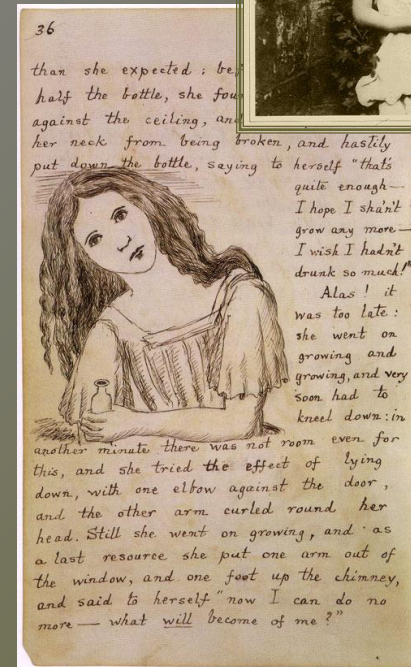 36
than she expected : be
half the bottle, she fou
against the ceiling, and
her neck from being broken, and hastily
put down the bottle, saying to herself "that's
quite enough—
I hope I shan't
grow any more—
I wish I hadn't
drunk so much!"
Alas ! it
was too late :
she went on
growing and
growing, and very
soon had to
kneel down : in
another minute there was not room even for
this, and she tried the effect of lying
down, with one elbow against the door,
and the other arm curled round her
head. Still she went on growing, and as
a last resource she put one arm out of
the window, and one foot up the chimney,
and said to herself "now I can do no
more — what will become of me ?"